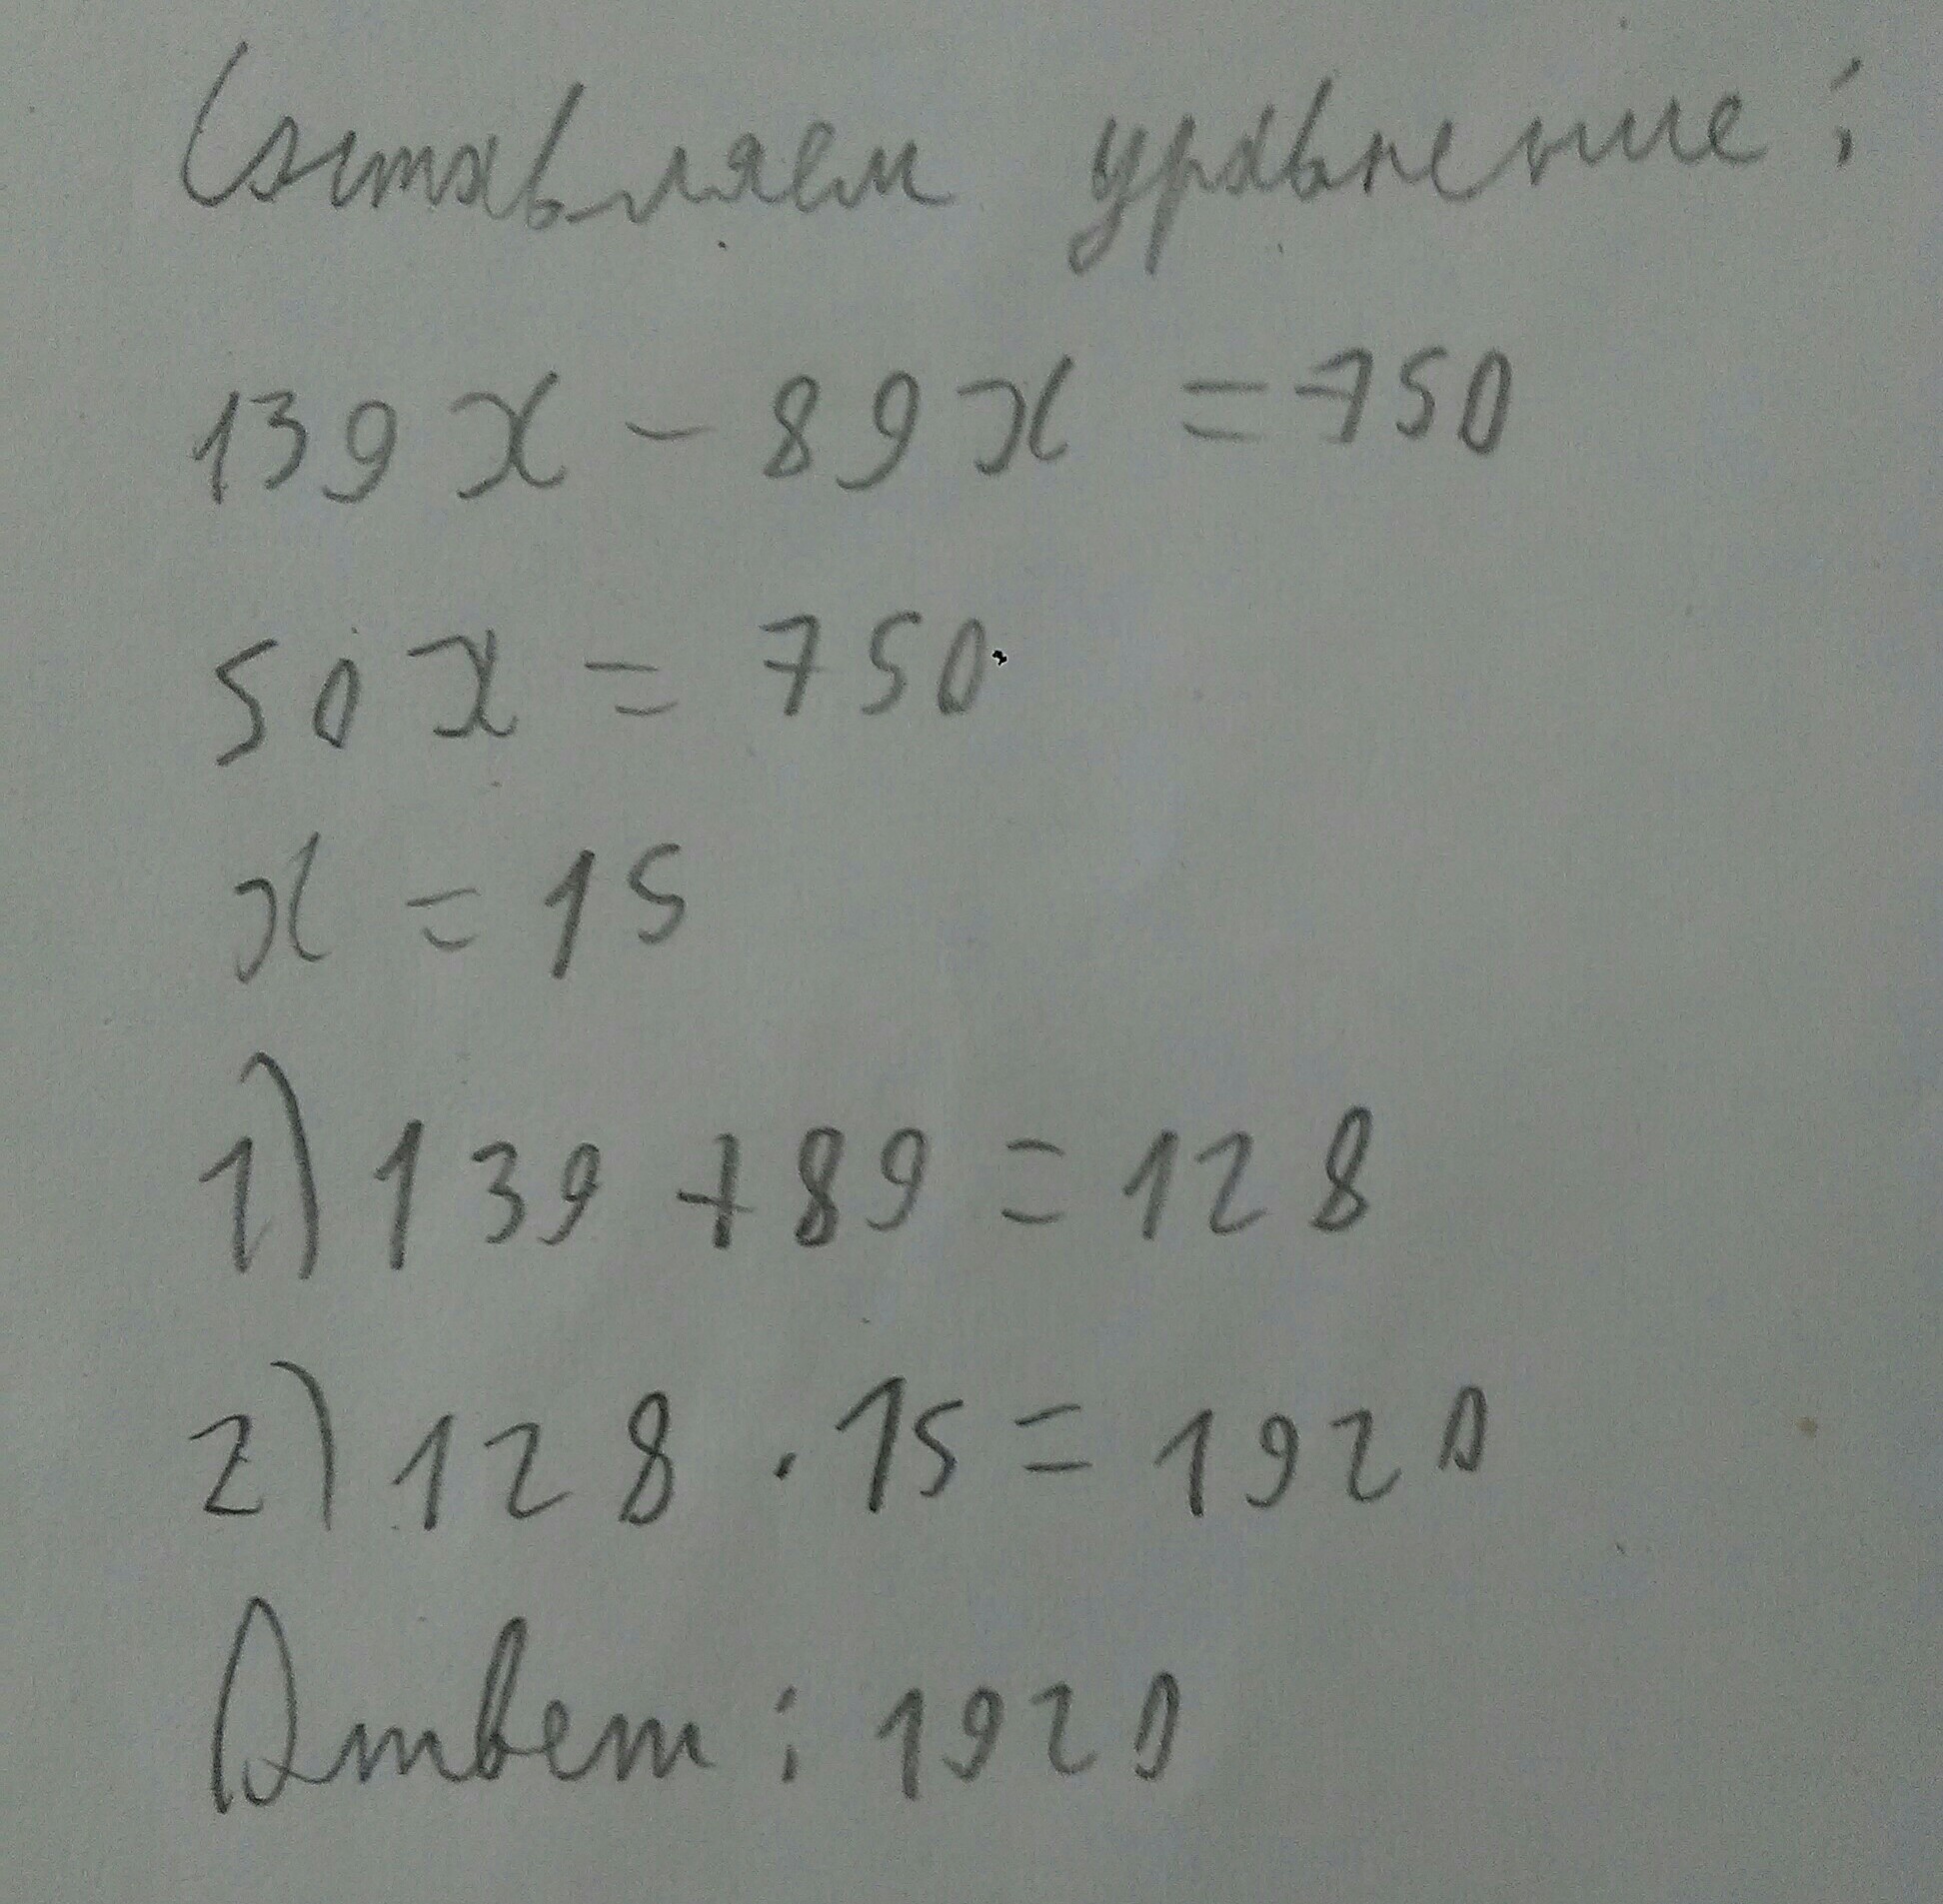 Составляем уравнение:
139x - 89x = 750
50x = 750
x = 15
1) 139 + 89 = 128
2) 128 · 15 = 1920
Ответ: 1920